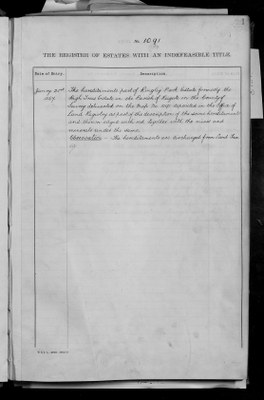 No. 1091
THE REGISTER OF ESTATES WITH AN INDEFEASIBLE TITLE.
Date of Entry. Description.
January 21st The hereditaments part of Ringley Park Estate formerly the
High Trees Estate in the Parish of Reigate in the County of
Surrey delineated on the Map No. deposited in the Office of
Land Registry as part of the description of the same hereditaments
and thereon edged with red together with the mines and
minerals under the same.
Observation - The hereditaments are discharged from Land Tax